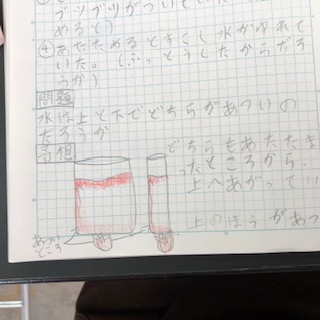 ブツブツがついて
めると)
④あたためるときに水がゆれて
いた。(ふっとうしたからだろ
うか)
問題
水は上と下でどちらがあついの
だろうか
予想
どちらもあたたま
ったところから、
上へあがってい
上のほうがあつ
あつい
ところ